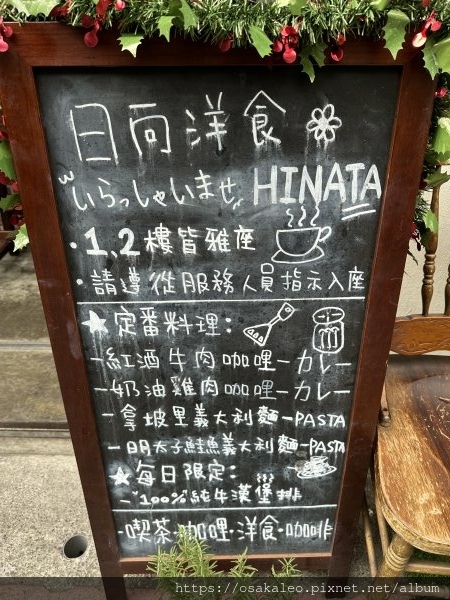 日向洋食
いらっしゃいませ HINATA
·1,2樓皆雅座
·請遵從服務人員指示入座
★定番料理:
-紅酒牛肉咖哩-カレー
-奶油雞肉咖哩-カレー
-拿坡里義大利麵-PASTA
-明太子鮭魚義大利麵-PASTA
★每日限定:
-"100%"純牛漢堡排
-喫茶·咖哩·洋食·咖啡
https://osakaleo.pixnet.net/album